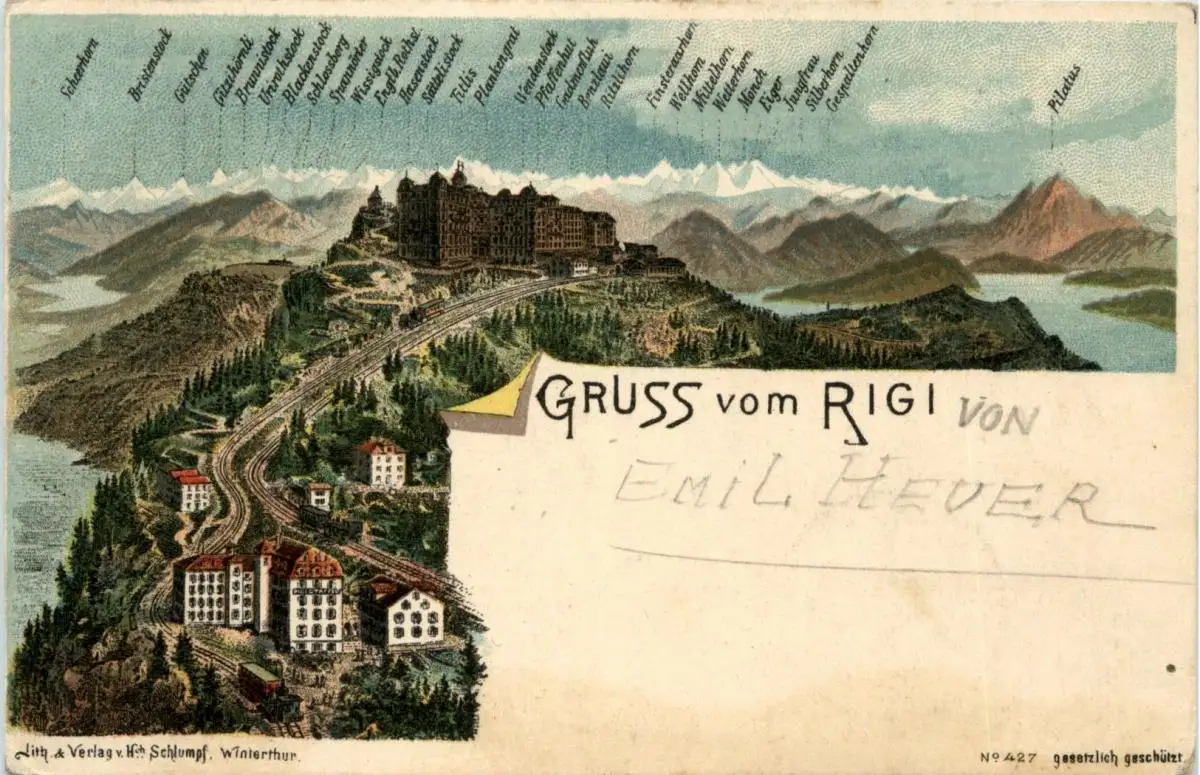 Scheerhorn
Bristenstock
Gütschen
Gitschen
Brunnistock
Urirothstock
Blackenstock
Schlossberg
Spannörter
Wissigstock
Engelb. Rothst.
Sättelistock
Titlis
Plankengrat
Wendenstock
Pfaffenhut
Gadmerfluh
Benzlaui
Ritzlihorn
Finsteraarhorn
Wellhorn
Mittelhorn
Wetterhorn
Mönch
Eiger
Jungfrau
Silberhorn
Gespaltenhorn
Pilatus
GRUSS vom RIGI VON
EMIL HEUER
Lith. & Verlag v. Hch Schlumpf, Winterthur.
No 427 gesetzlich geschützt.